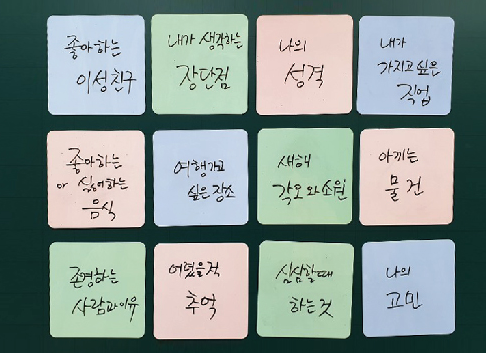 좋아하는
이성친구
내가 생각하는
장단점
나의
성격
내가
가지고 싶은
직업
좋아하는
or 싫어하는
음식
여행가고
싶은 장소
새해
각오와 소원
아끼는
물건
존경하는
사람과 이유
어렸을적
추억
심심할때
하는 것
나의
고민